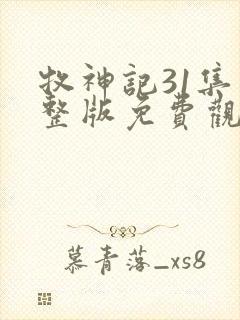 牧神記31集
整版免費觀
慕青落_xs8